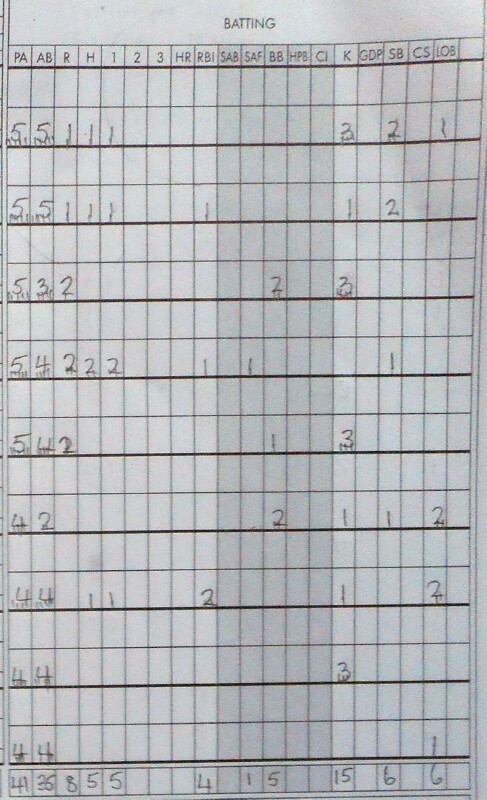 BATTING
PA AB R H 1 2 3 HR RBI SAB SAF BB HPB CI K GDP SB CS LOB
5 5 1 1 1 3 2 1
5 5 1 1 1 1 1 2
5 3 2 2 3
5 4 2 2 2 1 1 1
5 4 2 1 3
4 2 2 1 1 2
4 4 1 1 2 1 2
4 4 3
4 4 1
41 35 8 5 5 4 1 5 15 6 6